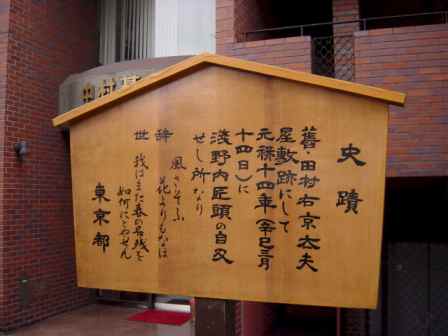 史蹟
舊・田村右京太夫
屋敷跡にして
元祿十四年(辛巳三月
十四日)に
淺野内匠頭の自刃
せし所なり
辞世
風さそふ
花よりもなほ
我はまた春の名残を
如何にとやせん
東京都